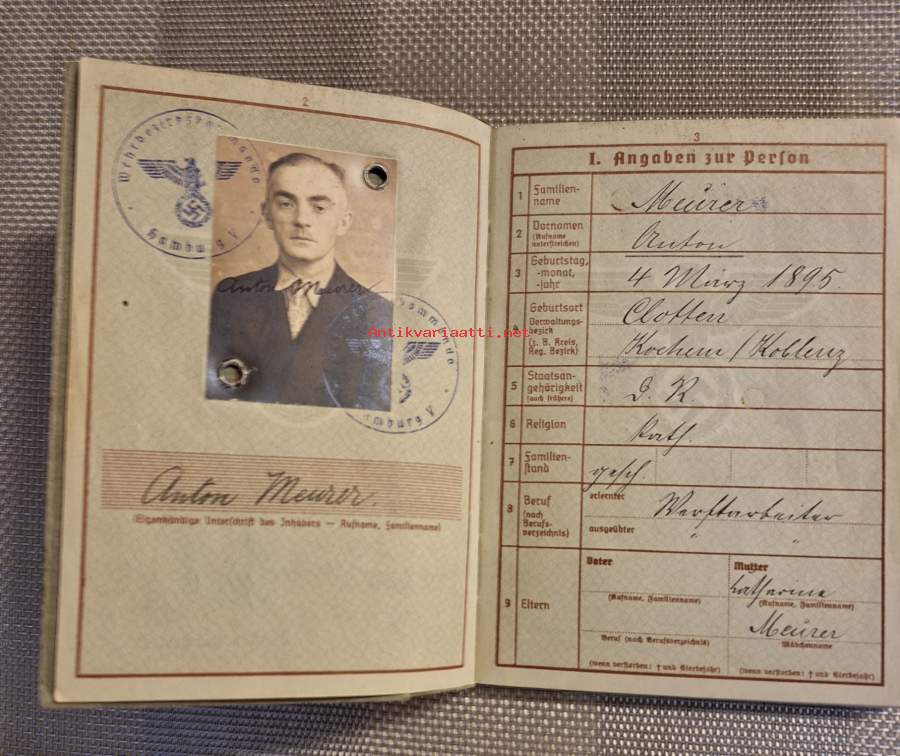 2
Wehrbezirkskommando
Hamburg V
Anton Meurer
Hamburg V
Antikvariaatti.net
Anton Meurer.
(Eigenhändige Unterschrift des Inhabers — Rufname, Familienname)
3
I. Angaben zur Person
1 Familien-
name
Meurer
2 Vornamen
(Rufname
unterstreichen)
Anton
3 Geburtstag,
-monat,
-jahr
4 März 1895.
Geburtsort
Verwaltungs-
bezirk
(z. B. Kreis,
Reg. Bezirk)
Clotten
Kochem/Koblenz
5 Staatsan-
gehörigkeit
(auch frühere)
D. R.
6 Religion
kath.
7 Familien-
stand
gesch.
8 Beruf
(nach
Berufs-
verzeichnis)
erlernter
Werftarbeiter
ausgeübter
" "
9 Eltern
Vater
(Rufname, Familienname)
Beruf (nach Berufsverzeichnis)
(wenn verstorben: † und Sterbejahr)
Mutter
Katharina
(Rufname, Familienname)
Meurer
Mädchenname
(wenn verstorben: † und Sterbejahr)